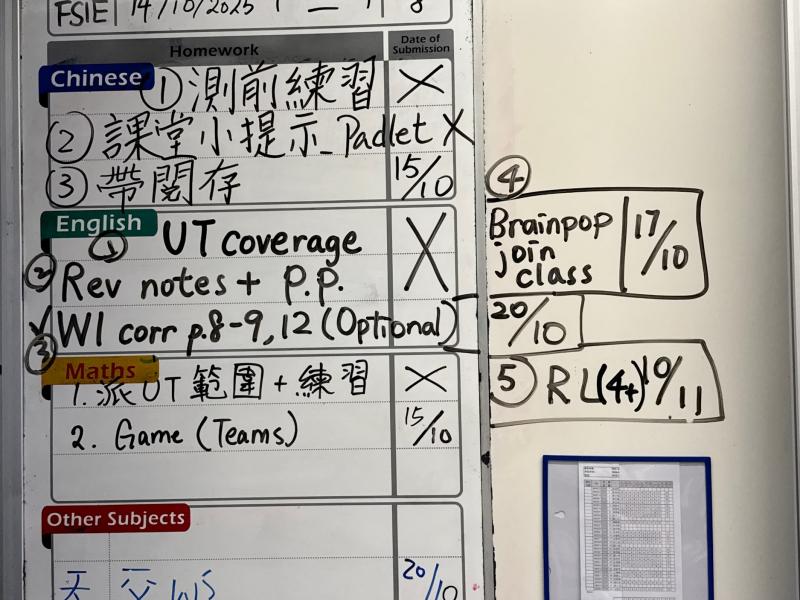 FSIE 14/10/2025 8
Homework Date of Submission
Chinese ① 測前練習 X
② 課堂小提示_Padlet X
③ 帶閱存 15/10
English ① UT coverage X
② Rev notes + p.p.
✓ ③ WI corr p.8-9, 12 (Optional) 20/10
④ Brainpop join class 17/10
⑤ RL(4+) 10/11
Maths
1. 派UT範圍+練習 X
2. Game (Teams) 15/10
Other Subjects
20/10